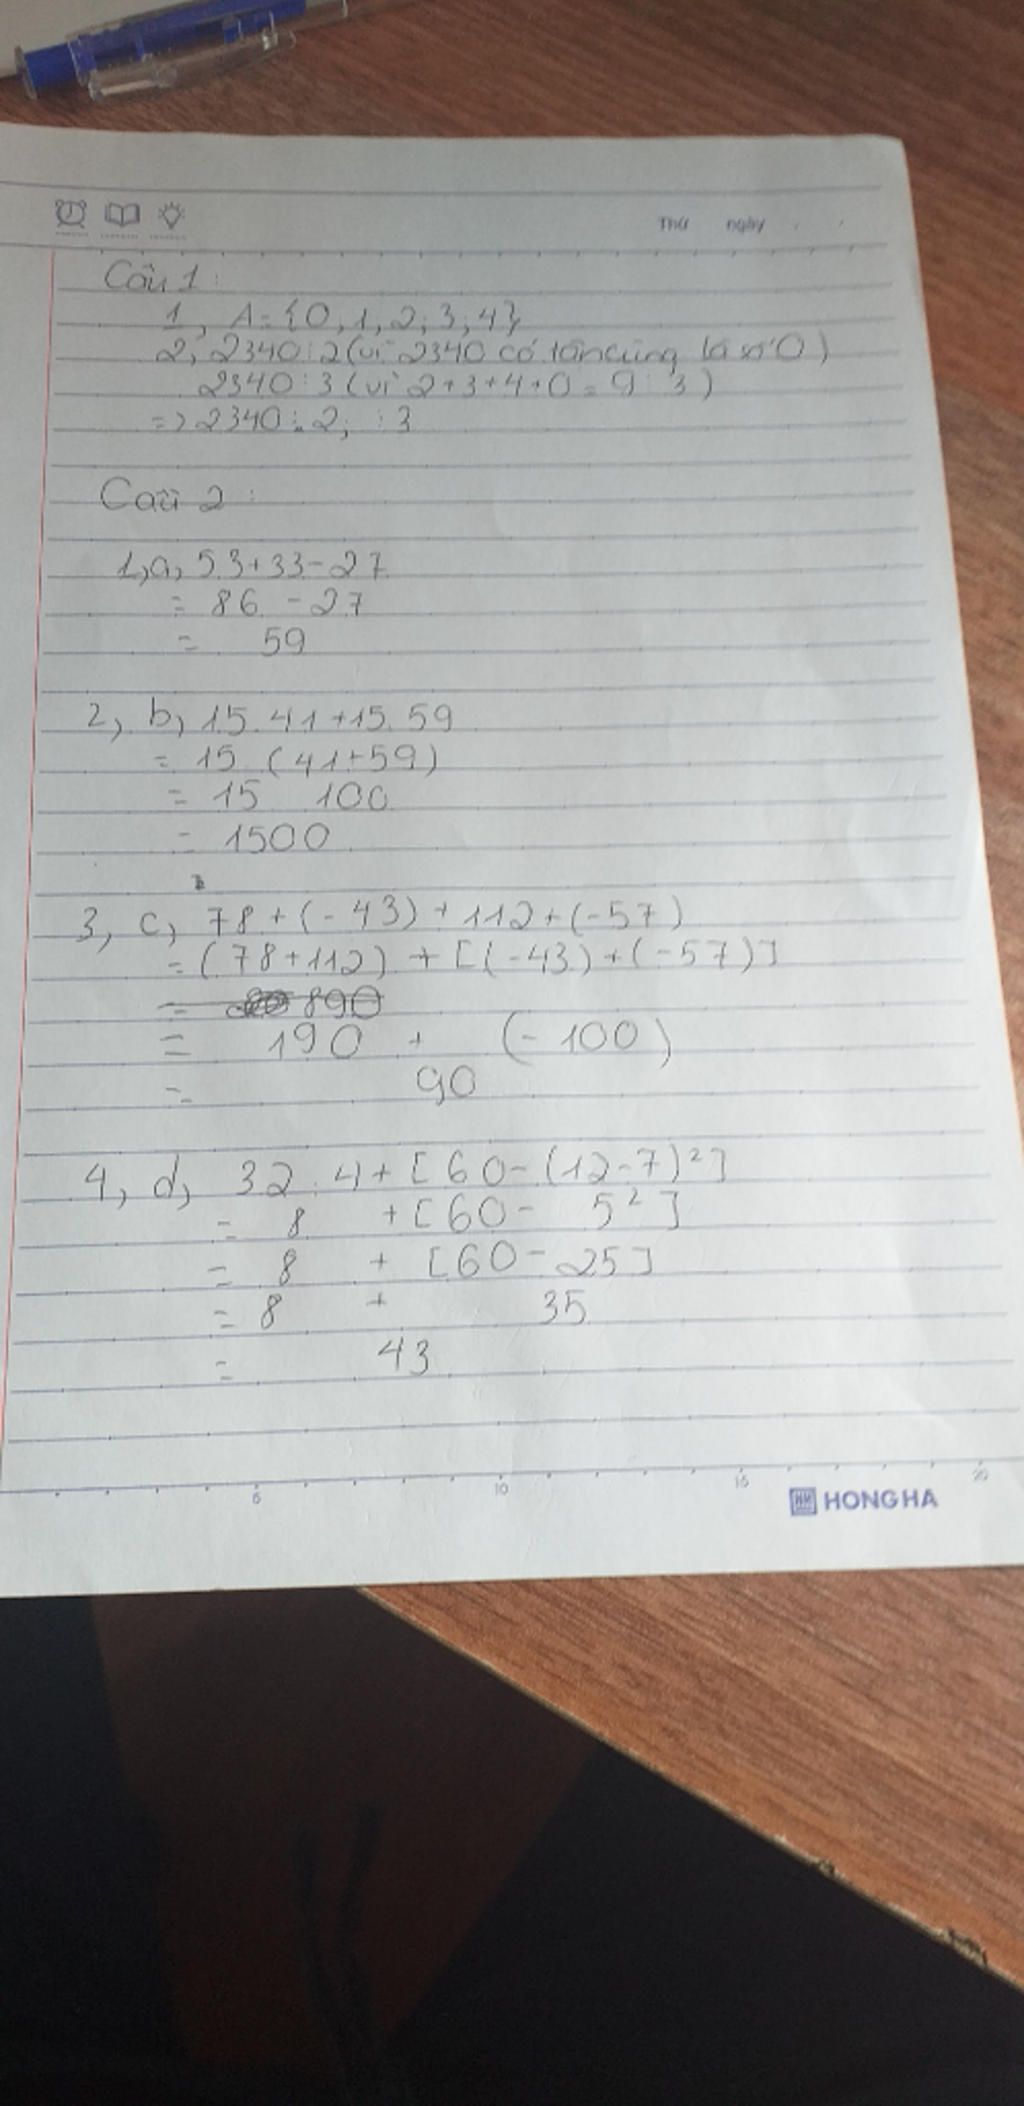 Thứ ngày
Câu 1:
1, A = {0, 1, 2; 3, 4}
2, 2340 : 2 (vì 2340 có tân cùng là số 0)
2340 : 3 (vì 2+3+4+0 = 9 : 3)
=> 2340 : 2; : 3
Câu 2:
1, a, 53+33-27
= 86 - 27
= 59
2, b, 15.41+15.59
= 15 (41+59)
= 15 100
= 1500
3, c, 78 + (-43) + 112 + (-57)
= (78+112) + [(-43) + (-57)]
= 890
= 190 + (-100)
= 90
4, d, 32 : 4 + [60 - (12-7)²]
= 8 + [60 - 5²]
= 8 + [60 - 25]
= 8 + 35
= 43
5 10 15 20
HONG HA